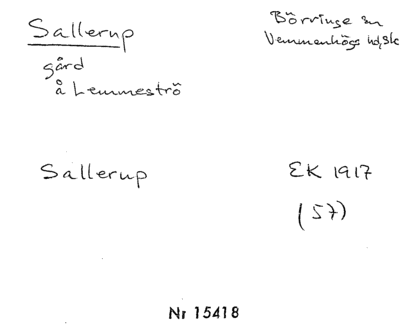 Sallerup
Börringe sn
Vemmenhögs hd, Sk
gård
å Lemmeströ
Sallerup
EK 1917
(57)
Nr 15418